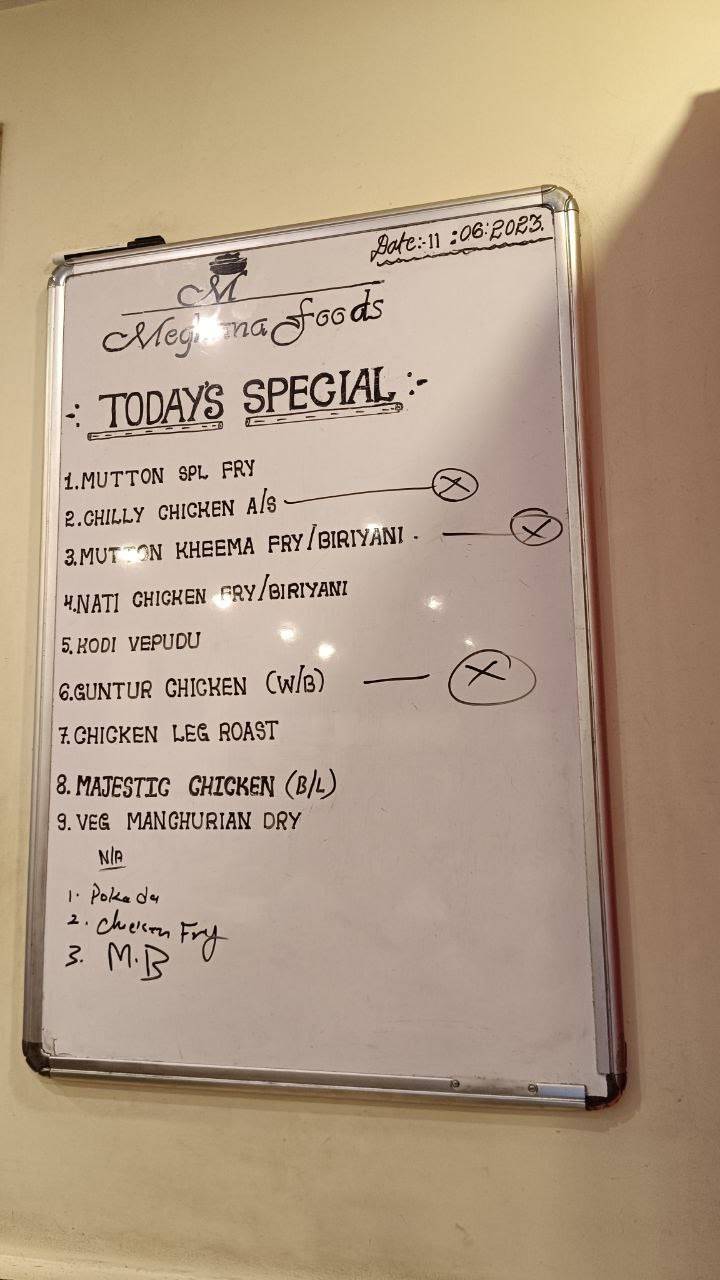 Date:-11:06:2023.
M
Meghana Foods
-: TODAY'S SPECIAL :-
1.MUTTON SPL FRY
2.CHILLY CHICKEN A/S
3.MUTTON KHEEMA FRY/BIRIYANI.
4.NATI CHICKEN FRY/BIRIYANI
5.KODI VEPUDU
6.GUNTUR CHICKEN (W/B)
7.CHICKEN LEG ROAST
8.MAJESTIC CHICKEN (B/L)
9.VEG MANCHURIAN DRY
N/A
1. Pokada
2. Chicken Fry
3. M.B